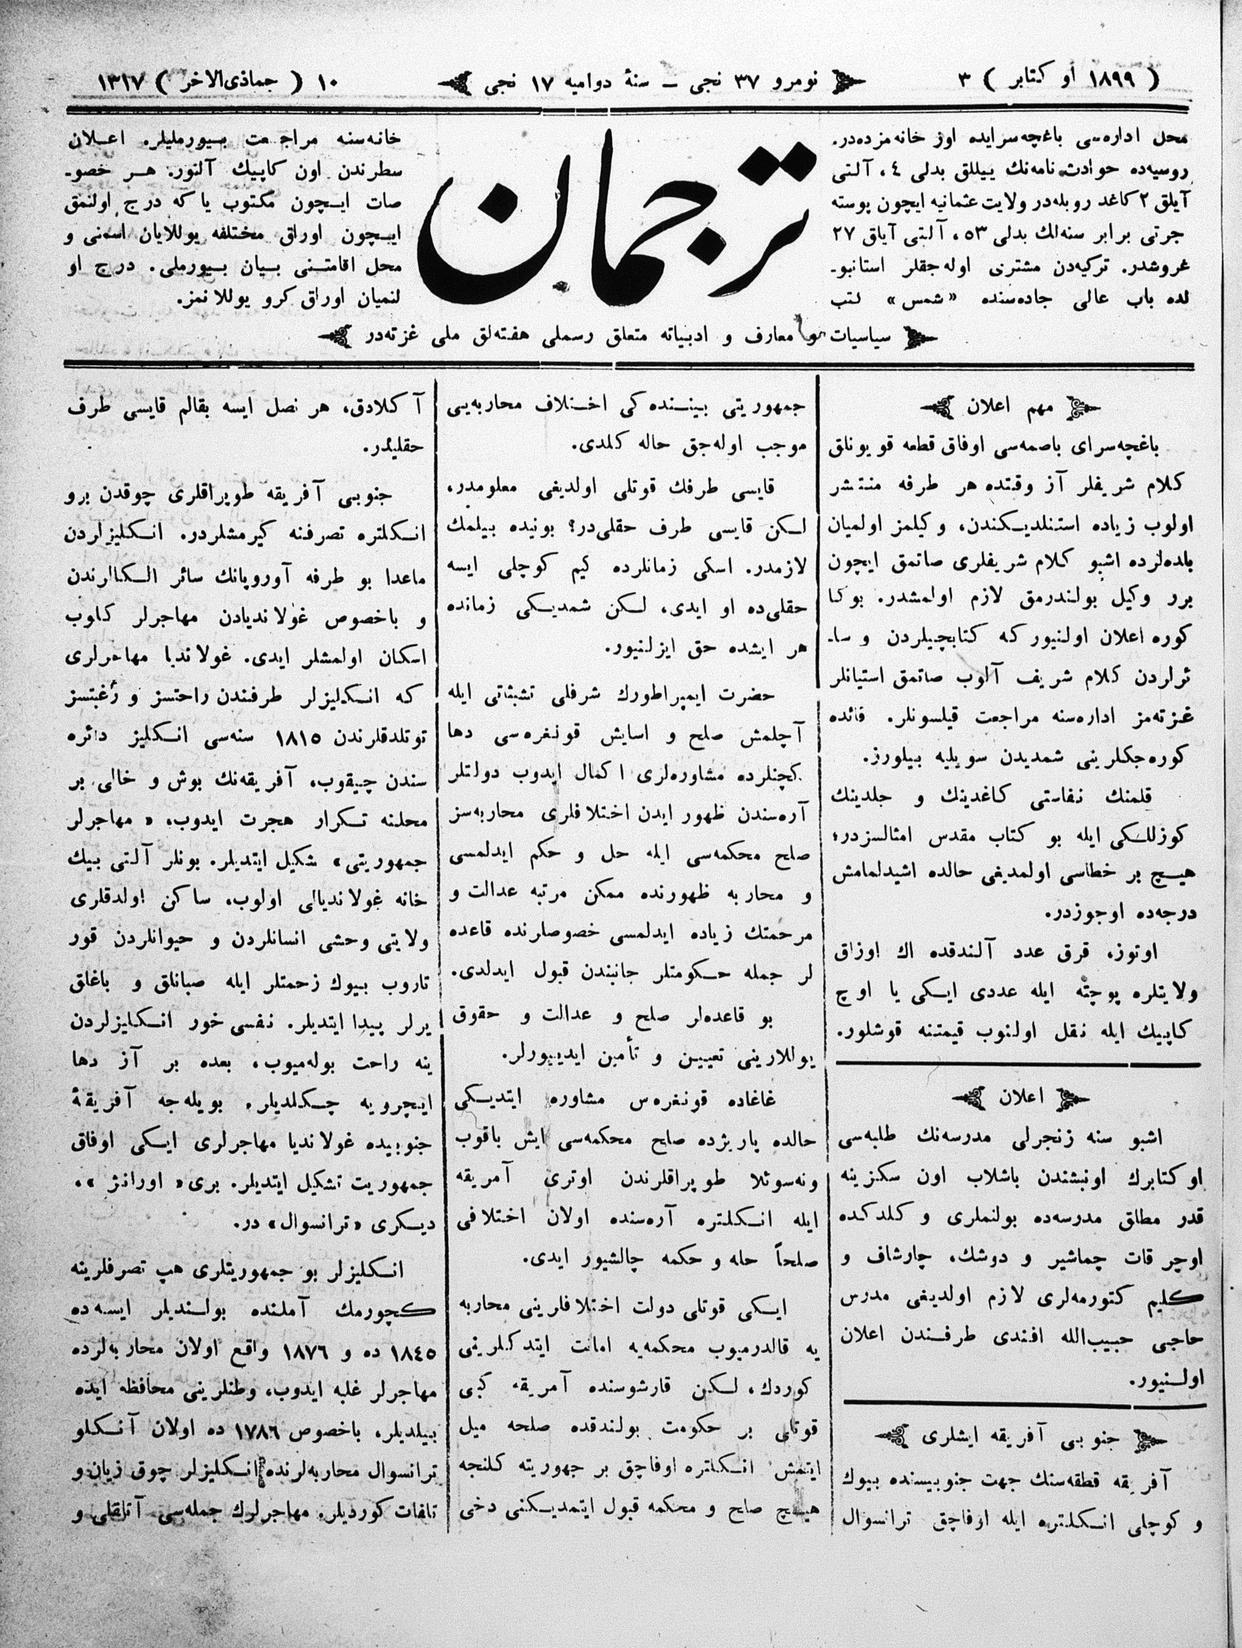 ( ١٨٩٩ اوكتابر ) ٣
نومرو ٣٧ نجی ــ سنهٔ دوامیه ١٧ نجی
١٠ ( جماذی‌الاخر ) ١٣١٧
محل اداره‌سی باغچه‌سرایده اوز خانه‌مزده‌در.
روسیه‌ده حوادث نامه‌نك ییللق بدلی ٤، آلتی
آیلق ٢ كاغد روبله‌در ولایت عثمانیه ایچون پوسته
جرتی برابر سنه‌لك بدلی ٥٣، آلتی آیاق ٢٧
غروشدر. تركیه‌دن مشتری اوله‌جقلر استانبو۔
لده باب عالی جاده‌سنده «شمس» لتب
ترجمان
خانه‌سنه مراجعت بیورملیلر. اعلان
سطرندن اون كاپیك آلنور. هر خصو۔
صات ایچون مكتوب یا كه درج اولنمق
ایچون اوراق مختلفه یوللایان اسمنی و
محل اقامتنی بیان بیورملی. درج او
لنمیان اوراق كرو یوللانمز.
سیاسیات و معارف و ادبیاته متعلق رسملی هفته‌لق ملی غزته‌در
مهم اعلان
باغچه‌سرای باصمه‌سی اوفاق قطعه قویونلق
كلام شریفلر آز وقتده هر طرفه منتشر
اولوب زیاده استنلدیكندن، وكیلمز اولمیان
بلده‌لرده اشبو كلام شریفلری صاتمق ایچون
برر وكیل بولندرمق لازم اولمشدر. بوكا
كوره اعلان اولنیور كه كتابچیلردن و سا۔
ئرلردن كلام شریف آلوب صاتمق استیانلر
غزته‌مز اداره‌سنه مراجعت قیلسونلر. فائده
كوره‌جكلرینی شمدیدن سویلیه بیلورز.
قلمنك نفاستی كاغدینك و جلدینك
كوزللكی ایله بو كتاب مقدس امثالسزدر؛
هیچ بر خطاسی اولمدیغی حالده اشیدلمامش
درجه‌ده اوجوزدر.
اوتوز، قرق عدد آلندقده اك اوزاق
ولایتلره پوچته ایله عددی ایكی یا اوچ
كاپیك ایله نقل اولنوب قیمتنه قوشلور.
اعلان
اشبو سنه زنجرلی مدرسه‌نك طلبه‌سی
اوكتابرك اونبشندن باشلاب اون سكزینه
قدر مطلق مدرسه‌ده بولنملری و كلدكده
اوچر قات چماشیر و دوشك، چارشاف و
كلیم كتورمه‌لری لازم اولدیغی مدرس
حاجی حبیب‌الله افندی طرفندن اعلان
اولنیور.
جنوبی آفریقه ایشلری
آفریقه قطقه‌سنك جهت جنوبیسنده بیوك
و كوچلی انكلتره ایله اوفاچق ترانسوال
جمهوریتی بیننده‌كی اختلاف محاربه‌یی
موجب اوله‌جق حاله كلدی.
قایسی طرفك قوتلی اولدیغی معلومدر،
لكن قایسی طرف حقلی‌در؟ بونیده بیلمك
لازمدر. اسكی زمانلرده كیم كوچلی ایسه
حقلی‌ده او ایدی، لكن شمدیكی زمانده
هر ایشده حق ایزلنیور.
حضرت ایمپراطورك شرفلی تشبثاتی ایله
آچلمش صلح و اسایش قونغره‌سی دها
كچنلرده مشاوره‌لری اكمال ایدوب دولتلر
آره‌سندن ظهور ایدن اختلافلری محاربه‌سز
صلح محكمه‌سی ایله حل و حكم ایدلمسی
و محاربه ظهورنده ممكن مرتبه عدالت و
مرحمتك زیاده ایدلمسی خصوصلرنده قاعده
لر جمله حكومتلر جانبندن قبول ایدلدی.
بو قاعده‌لر صلح و عدالت و حقوق
یوللارینی تعیین و تأمین ایدییورلر.
غاغاده قونغره‌س مشاوره ایتدیكی
حالده پاریژده صلح محكمه‌سی ایش باقوب
ونه‌سوئلا طوپراقلرندن اوتری آمریقه
ایله انكلتره آره‌سنده اولان اختلافی
صلحاً حله و حكمه چالشیور ایدی.
ایكی قوتلی دولت اختلافارینی محاربه
یه قالدرمیوب محكمه‌یه امانت ایتدكلرینی
كوردك، لكن قارشوسنده آمریقه كبی
قوتلی بر حكومت بولندقده صلحه میل
ایتمش انكلتره اوفاچق بر جهوریته كلنجه
هیچ صلح و محكمه قبول ایتمدیكنی دخی
آكلادق، هر نصل ایسه بقالم قایسی طرف
حقلیدر.
جنوبی آفریقه طوپراقلری چوقدن برو
انكلتره تصرفنه كیرمشلردر. انكلیزلردن
ماعدا بو طرفه آوروپانك سائر الكالرندن
و باخصوص غولاندیادن مهاجرلر كلوب
اسكان اولمشلر ایدی. غولاندیا مهاجرلری
كه انكلیزلر طرفندن راحتسز و رغبتسز
توتلدقلرندن ١٨١٥ سنه‌سی انكلیز دائره
سندن چیقوب، آفریقه‌نك بوش و خالی بر
محلنه تكرار هجرت ایدوب، «مهاجرلر
جمهوریتی» شكیل ایتدیلر. بونلر آلتی بیك
خانه غولاندیالی اولوب، ساكن اولدقلری
ولایتی وحشی انسانلردن و حیوانلردن قور
تاروب بیوك زحمتلر ایله صبانلق و باغلق
یرلر پیدا ایتدیلر. نفسی خور انكلیزلردن
ینه راحت بوله‌میوب، بعده بر آز دها
ایچرویه چكلدیلر. بویله‌جه آفریقهٔ
جنوبیده غولاندیا مهاجرلری ایكی اوفاق
جمهوریت تشكیل ایتدیلر. بری «اورانژ»،
دیكری «ترانسوال» در.
انكلیزلر بو جمهوریتلری هپ تصرفلرینه
كچورمك آملنده بولندیلر ایسه‌ده
١٨٤٥ ده و ١٨٧٦ واقع اولان محاربه‌لرده
مهاجرلر غلبه ایدوب، وطنلرینی محافظه ایده
بیلدیلر، باخصوص ١٧٨٦ ده اولان آنكلو
ترانسوال محاربه‌لرنده انكلیزلر چوق زیان و
تلفات كوردیلر. مهاجرلرك جمله‌سی آتلقلی و